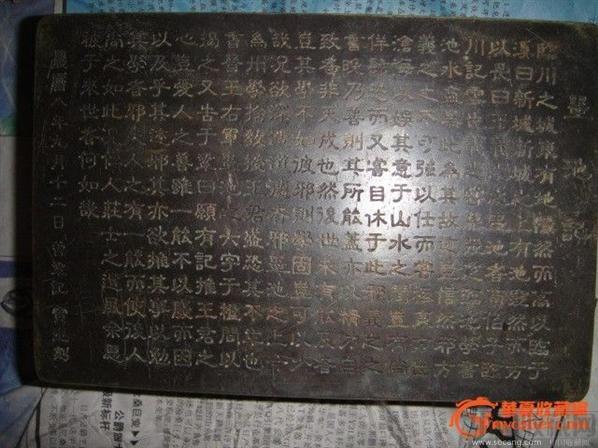 墨池記
臨川之城東有地隱然而高以臨于
溪曰新城新城之上有池窪然而方
以長曰王羲之之墨池者荀伯子臨
川記云也羲之嘗慕張芝臨池學書
池水盡黑此為其故迹豈信然邪方
羲之之不可強以仕而嘗極東方出
滄海以娛其意于山水之間豈有徜
徉肆恣而又嘗自休于此邪羲之之
書晚乃善則其所能蓋亦以精力自
致者非天成也然後世未有能及者
豈其學不如彼邪則學固豈可以少
哉況欲深造道德者邪墨池之上今
為州學舍教授王君盛恐其不章也
書晉王右軍墨池之六字于楹間以
揭之又告于鞏曰願有記推王君之
心豈愛人之善雖一能不以廢而因
以及乎其迹邪其亦欲推其事以勉
其學者邪夫人之有一能而使後人
尚之如此況仁人莊士之遺風餘思
被于來世者何如哉
慶曆八年九月十二日曾鞏記 刻
華夏收藏網
mycollect.net
www.socang.com